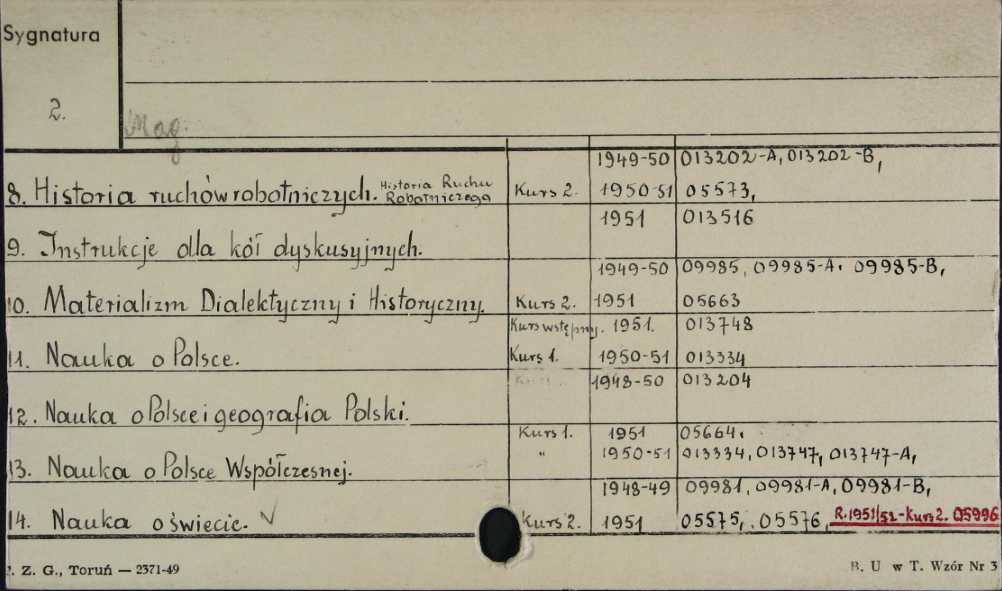 Sygnatura
2.
Mag.
1949-50 013202-A, 013202-B,
8. Historia ruchów robotniczych. Historia Ruchu Robotniczego Kurs 2. 1950-51 05573,
1951 013516
9. Instrukcje dla kół dyskusyjnych.
1949-50 09985, 09985-A. 09985-B,
10. Materializm Dialektyczny i Historyczny. Kurs 2. 1951 05663
Kurs wstępny. 1951. 013748
11. Nauka o Polsce. Kurs 1. 1950-51 013334
1948-50 013204
12. Nauka o Polsce i geografia Polski.
Kurs 1. 1951 05664.
" 1950-51 013334, 013747, 013747-A,
13. Nauka o Polsce Współczesnej.
1948-49 09981, 09981-A, 09981-B,
14. Nauka o świecie. Kurs 2. 1951 05575, 05576, R.1951/52-Kurs 2. 05996
Z. G., Toruń — 2371-49
B. U w T. Wzór Nr 3